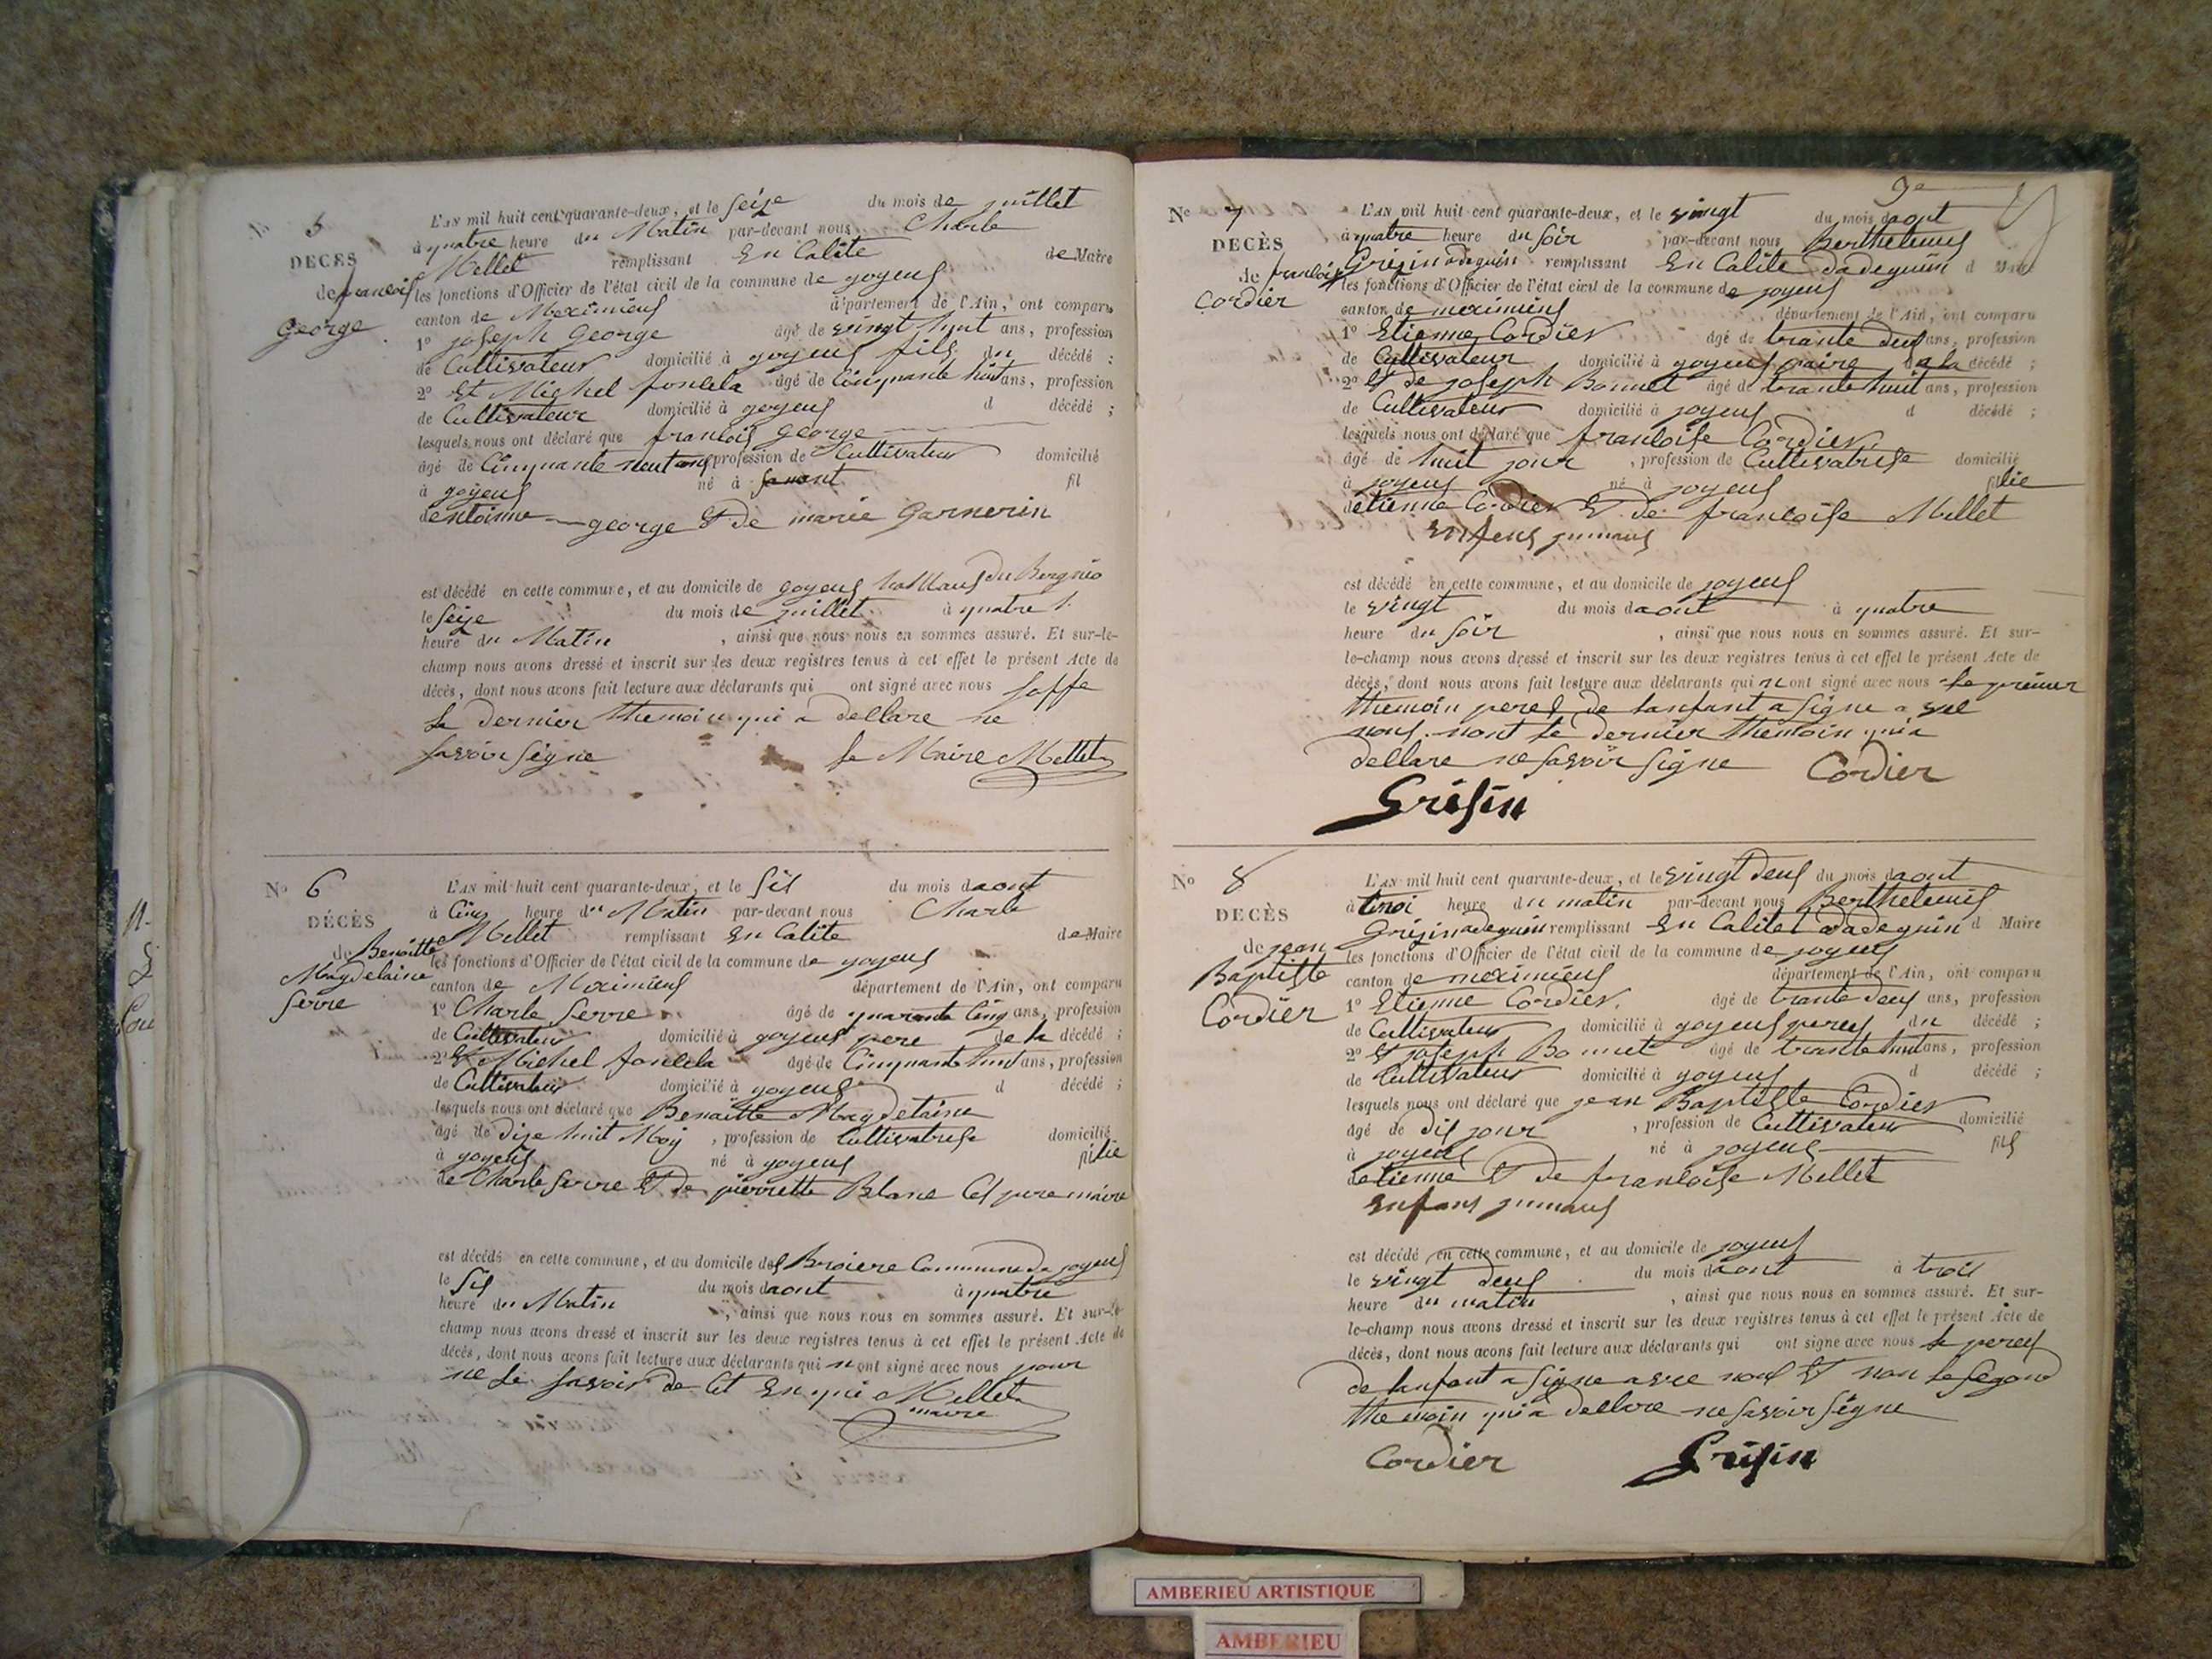 No 5
DECES
de francois
George
L'AN mil huit cent quarante-deux, et le seize du mois de juillet
à quatre heure du Matin par-devant nous Charle
Mellet remplissant En Calite de Maire
les fonctions d'Officier de l'état civil de la commune de joyeus
canton de Meximieus département de l'Ain, ont comparu
1o joseph George âgé de vingt huit ans, profession
de Cultivateur domicilié à joyeus fils du décédé ;
2o Et Michel fonlela âgé de Cinquante huit ans, profession
de Cultivateur domicilié à joyeus d décédé ;
lesquels nous ont déclaré que francois George
âgé de Cinquante neuf ans profession de Cultivateur domicilié
à joyeus né à fil
dentoinne george Et de marie Garnerin
est décédé en cette commune, et au domicile de joyeus
le Seize du mois de juillet à quatre
heure du Matin , ainsi que nous nous en sommes assuré. Et sur-le-
champ nous avons dressé et inscrit sur les deux registres tenus à cet effet le présent Acte de
décès, dont nous avons fait lecture aux déclarants qui ont signé avec nous
le dernier themoin qui a dellare ne
savoir signe le Maire Mellet
No 6
DÉCÈS
de Benoitte
Magdelaine
Serre
L'AN mil huit cent quarante-deux, et le sis du mois daout
à Cinq heure du Matin par-devant nous Charle
Mellet remplissant En Calite de Maire
les fonctions d'Officier de l'état civil de la commune de joyeus
canton de Meximieus département de l'Ain, ont comparu
1o Charle Serre âgé de quarante Cinq ans, profession
de Cultivateur domicilié à joyeus pere de la décédé ;
2o Et Michel fonlela âgé de Cinquante huit ans, profession
de Cultivateur domicilié à joyeus d décédé ;
lesquels nous ont déclaré que Benoitte Magdelaine
âgé de dize huit Moy , profession de Cultivatrise domicilié
à joyeus né à joyeus filie
de Charle Serre Et de pierrette Blanc
est décédé en cette commune, et au domicile des Broiere Commune de joyeus
le Sis du mois daout à quatre
heure du Matin , ainsi que nous nous en sommes assuré. Et sur-le-
champ nous avons dressé et inscrit sur les deux registres tenus à cet effet le présent Acte de
décès, dont nous avons fait lecture aux déclarants qui n ont signé avec nous pour
ne le savoir de Mellet
maire
9e
No 7
DECÈS
de francoise
Cordier
L'AN mil huit cent quarante-deux, et le vingt du mois daout
à quatre heure du soir par-devant nous Berthelemis
Grisin adeguin remplissant En Calite dadeguin d Maire
les fonctions d'Officier de l'état civil de la commune de joyeus
canton de meximieus département de l'Ain, ont comparu
1o Etienne Cordier âgé de trante deus ans, profession
de Cultivateur domicilié à joyeus paire de la décédé ;
2o Et de joseph Bonnet âgé de trante huit ans, profession
de Cultivateur domicilié à joyeus d décédé ;
lesquels nous ont déclaré que francoise Cordier
âgé de huit jour , profession de Cultivatrise domicilié
à joyeus né à joyeus filie
detienne Cordier Et de francoise Mellet
Enfens jumaus
est décédé en cette commune, et au domicile de joyeus
le vingt du mois daout à quatre
heure du soir , ainsi que nous nous en sommes assuré. Et sur-
le-champ nous avons dressé et inscrit sur les deux registres tenus à cet effet le présent Acte de
décès, dont nous avons fait lecture aux déclarants qui n ont signé avec nous le premier
themoin peres de lanfant a signe a vec
nous. nont le dernier themoin qui a
dellare ne savoir signe Cordier
Grisin
No 8
DECÈS
de jean
Baptiste
Cordier
L'AN mil huit cent quarante-deux, et le vingt deus du mois daout
à troi heure du matin par-devant nous Berthelemis
Grisin adeguin remplissant En Calitet dadeguin d Maire
les fonctions d'Officier de l'état civil de la commune de joyeus
canton de meximieus département de l'Ain, ont comparu
1o Etienne Cordier âgé de trante deus ans, profession
de Cultivateur domicilié à joyeus peres du décédé ;
2o Et joseph Bonnet âgé de trante huit ans, profession
de Cultivateur domicilié à joyeus d décédé ;
lesquels nous ont déclaré que jean Baptiste Cordier
âgé de dis jour , profession de Cultivateur domicilié
à joyeus né à joyeus fils
detienne Et de francoise Mellet
Enfans jumaus
est décédé en cette commune, et au domicile de joyeus
le vingt deus du mois daout à trois
heure du matin , ainsi que nous nous en sommes assuré. Et sur-
le-champ nous avons dressé et inscrit sur les deux registres tenus à cet effet le présent Acte de
décès, dont nous avons fait lecture aux déclarants qui ont signé avec nous le peres
de lanfant a signe avec nous Et non le segond
themoin qui a dellare ne savoir signe
Cordier Grisin
AMBERIEU ARTISTIQUE
AMBERIEU